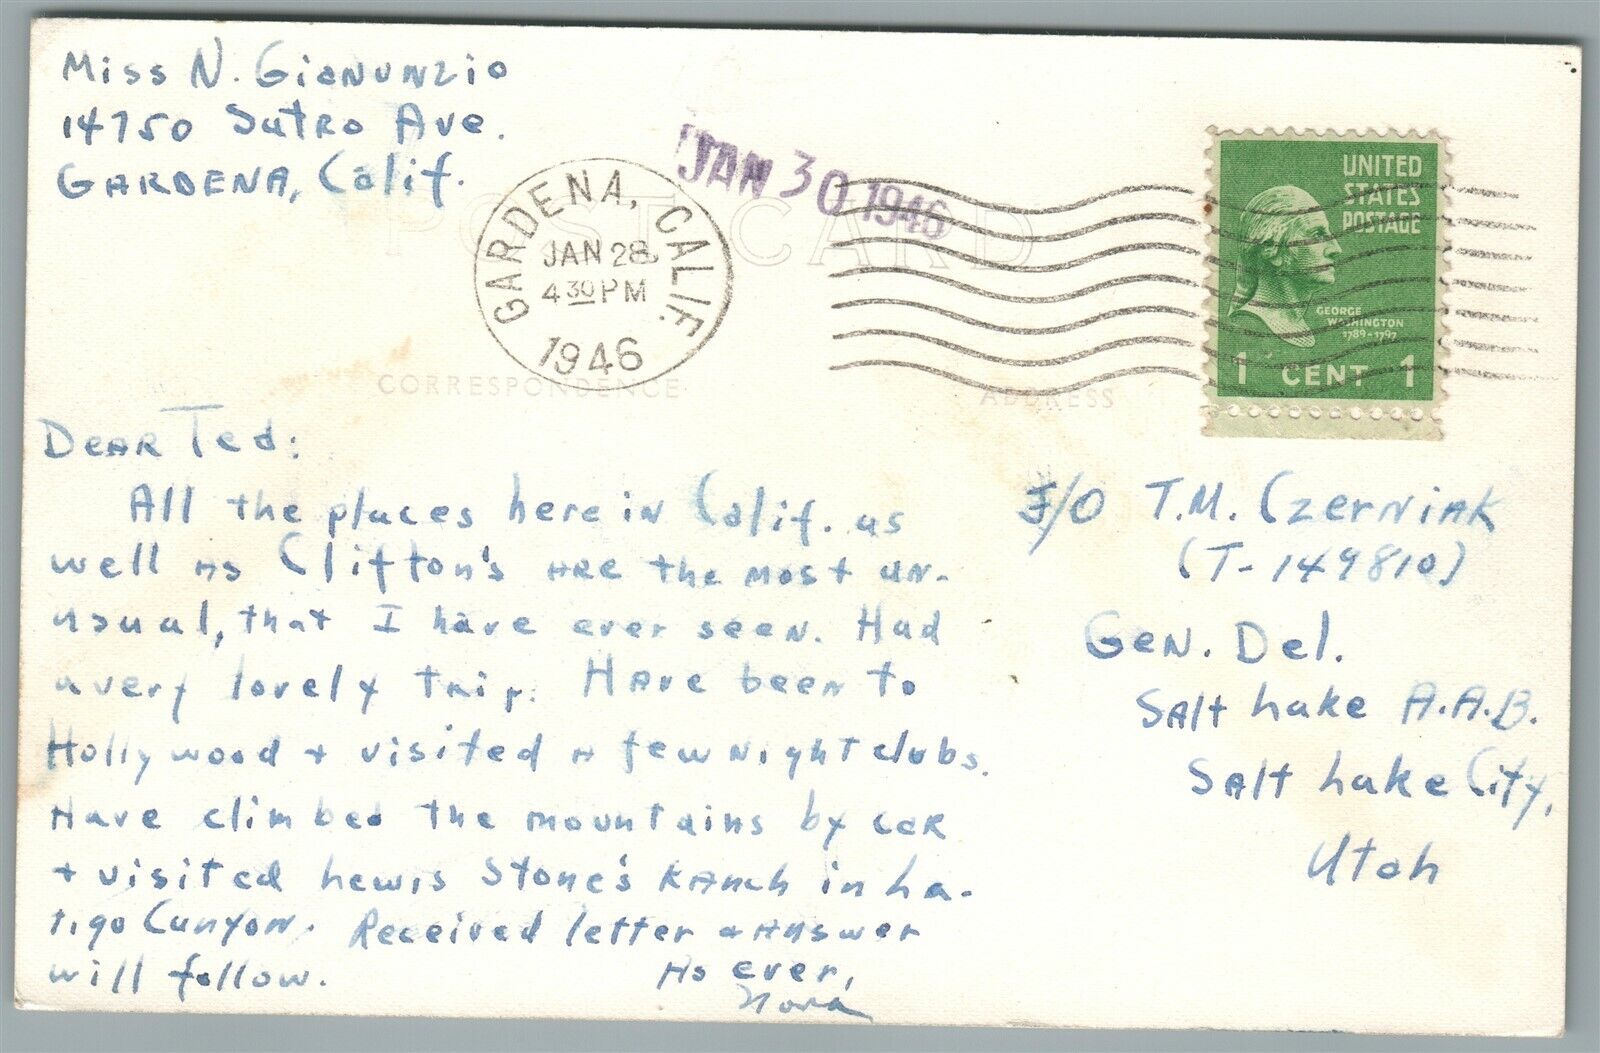 Miss N. Gianunzio
14750 Sutro Ave.
GARDENA, Calif.
JAN 30 1946
POST CARD
GARDENA, CALIF.
JAN 28
4 30 PM
1946
UNITED
STATES
POSTAGE
GEORGE
WASHINGTON
1789-1797
1 CENT 1
CORRESPONDENCE
ADDRESS
Dear Ted:
All the places here in Calif. as
well as Clifton's are the most un-
usual, that I have ever seen. Had
a very lovely trip. Have been to
Hollywood + visited a few nightclubs.
Have climbed the mountains by car
+ visited Lewis Stone's Ranch in La-
tigo Canyon. Received letter + answer
will follow.
As ever,
Nora
T.M. Czerniak
(T-149810)
Gen. Del.
Salt Lake A.A.B.
Salt Lake City,
Utah